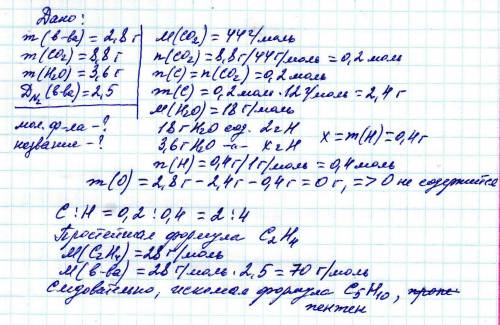 Дано:
m(в-ва)=2,8г
m(CO₂)=8,8г
m(H₂O)=3,6г
D_N₂(в-ва)=2,5
мол. ф-ла-?
название-?
M(CO₂)=44г/моль
n(CO₂)=8,8г/44г/моль=0,2мол
n(C)=n(CO₂)=0,2моль
m(C)=0,2моль·12г/моль=2,4г
M(H₂O)=18г/моль
18гH₂O сод. 2гH
3,6гH₂O -"- xгH
x=m(H)=0,4г
n(H)=0,4г/1г/моль=0,4моль
m(O)=2,8г-2,4г-0,4г=0г,=>O не содержится
C:H=0,2:0,4=2:4
Простейшая формула C₂H₄
M(C₂H₄)=28г/моль
M(в-ва)=28г/моль·2,5=70г/моль
Следовательно, искомая формула C₅H₁₀,
пентен